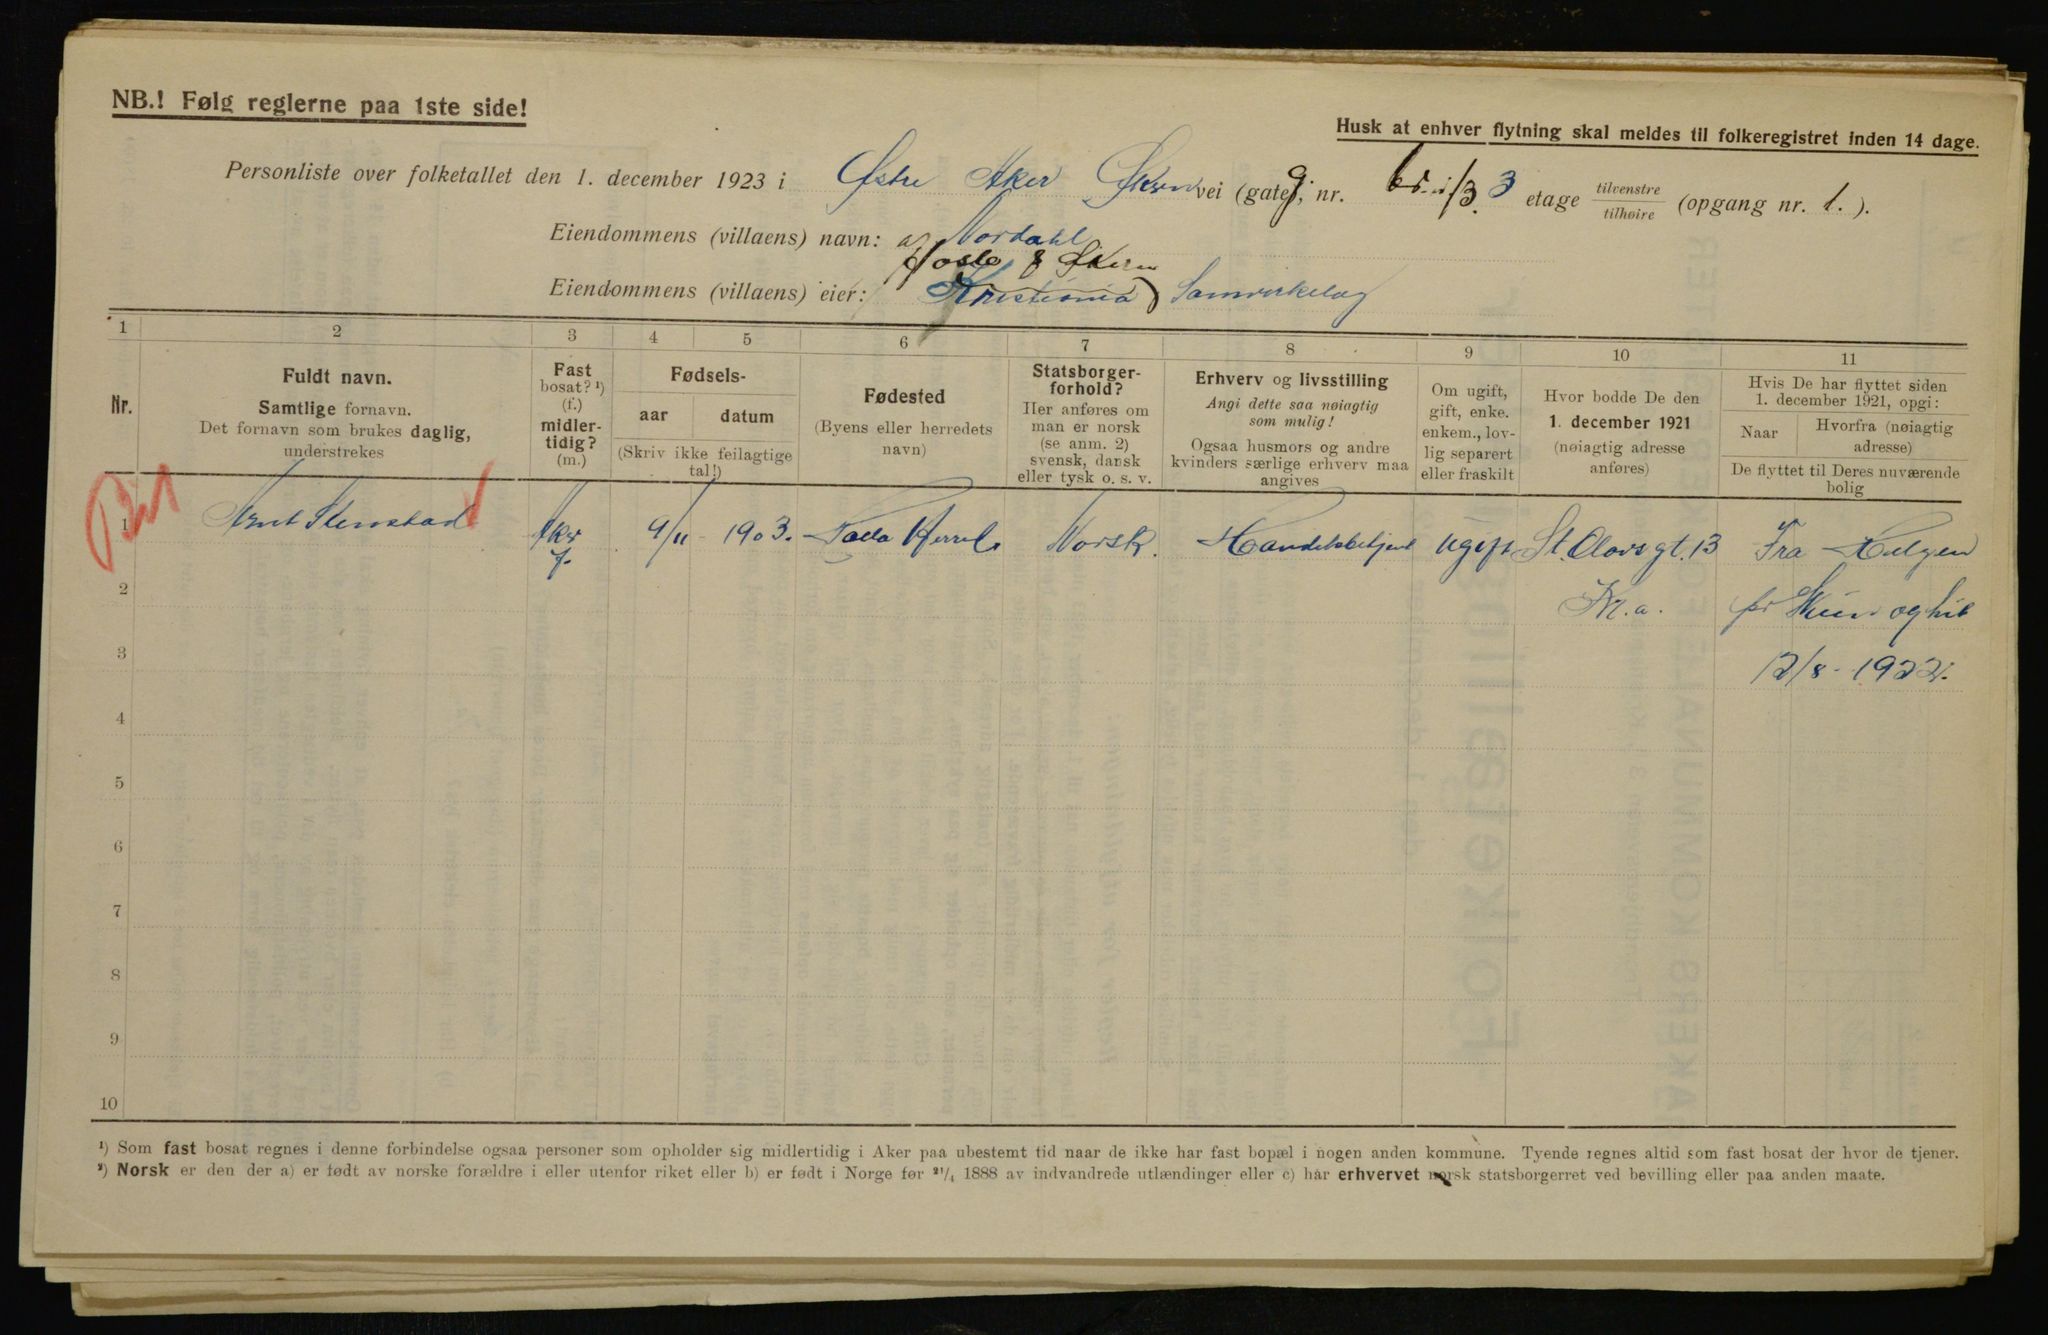 NB.! Følg reglerne paa 1ste side!
Husk at enhver flytning skal meldes til folkeregistret inden 14 dage.
Personliste over folketallet den 1. december 1923 i Østre Aker Økern vei (gate), nr. 3 etage tilvenstre tilhøire (opgang nr. 1.).
Eiendommens (villaens) navn: Nordahl
Oslo & Økern
Eiendommens (villaens) eier: Kristiania Samvirkelag
1 2 3 4 5 6 7 8 9 10 11
Nr.
Fuldt navn.
Samtlige fornavn.
Det fornavn som brukes daglig,
understrekes
Fast
bosat? ¹)
(f.)
midler-
tidig?
(m.)
Fødsels-
aar datum
(Skriv ikke feilagtige
tal!)
Fødested
(Byens eller herredets
navn)
Statsborger-
forhold?
Her anføres om
man er norsk
(se anm. 2)
svensk, dansk
eller tysk o. s. v.
Erhverv og livsstilling
Angi dette saa nøiagtig
som mulig!
Ogsaa husmors og andre
kvinders særlige erhverv maa
angives
Om ugift,
gift, enke.
enkem., lov-
lig separert
eller fraskilt
Hvor bodde De den
1. december 1921
(nøiagtig adresse
anføres)
Hvis De har flyttet siden
1. december 1921, opgi:
Naar Hvorfra (nøiagtig
adresse)
De flyttet til Deres nuværende
bolig
1 Arnt Stenstad f. 9/11 1903. Norsk. Handelsbetjent ugift St. Olavsgt. 13 Fra
2 Kr.a. og hit
3 12/8 - 1922.
4
5
6
7
8
9
10
¹) Som fast bosat regnes i denne forbindelse ogsaa personer som opholder sig midlertidig i Aker paa ubestemt tid naar de ikke har fast bopæl i nogen anden kommune. Tyende regnes altid som fast bosat der hvor de tjener.
²) Norsk er den der a) er født av norske forældre i eller utenfor riket eller b) er født i Norge før ²¹/₄ 1888 av indvandrede utlændinger eller c) har erhvervet norsk statsborgerret ved bevilling eller paa anden maate.